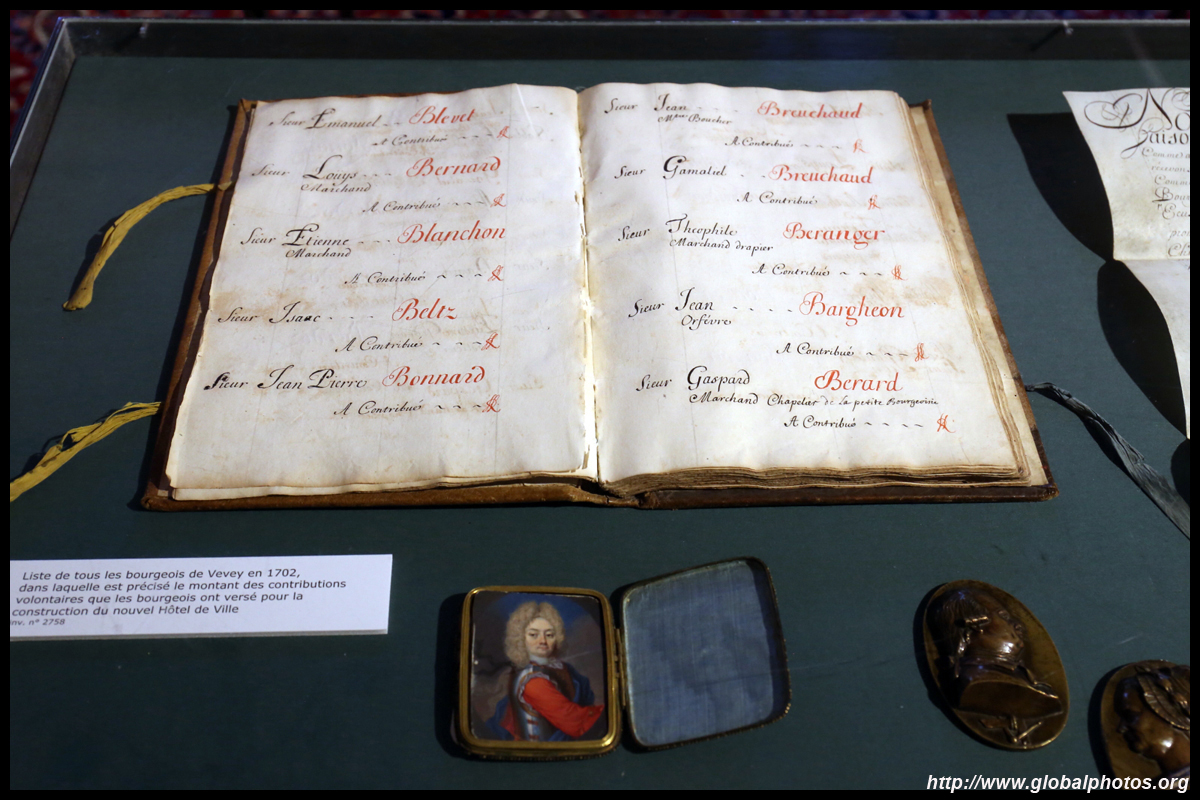 Sieur Emanuel Blevet
A Contribué
Sieur Louys Bernard
Marchand
A Contribué
Sieur Etienne Blanchon
Marchand
A Contribué
Sieur Isaac Beltz
A Contribué
Sieur Jean Pierre Bonnard
A Contribué
Sieur Jean Breuchaud
Boucher
A Contribué
Sieur Gamaliel Breuchaud
A Contribué
Sieur Theophile Beranger
Marchand drapier
A Contribué
Sieur Jean Bargheon
Orfévre
A Contribué
Sieur Gaspard Berard
Marchand Chapelat de la petite Bourgeoisie
A Contribué
Liste de tous les bourgeois de Vevey en 1702,
dans laquelle est précisé le montant des contributions
volontaires que les bourgeois ont versé pour la
construction du nouvel Hôtel de Ville
inv. n° 2758
http://www.globalphotos.org